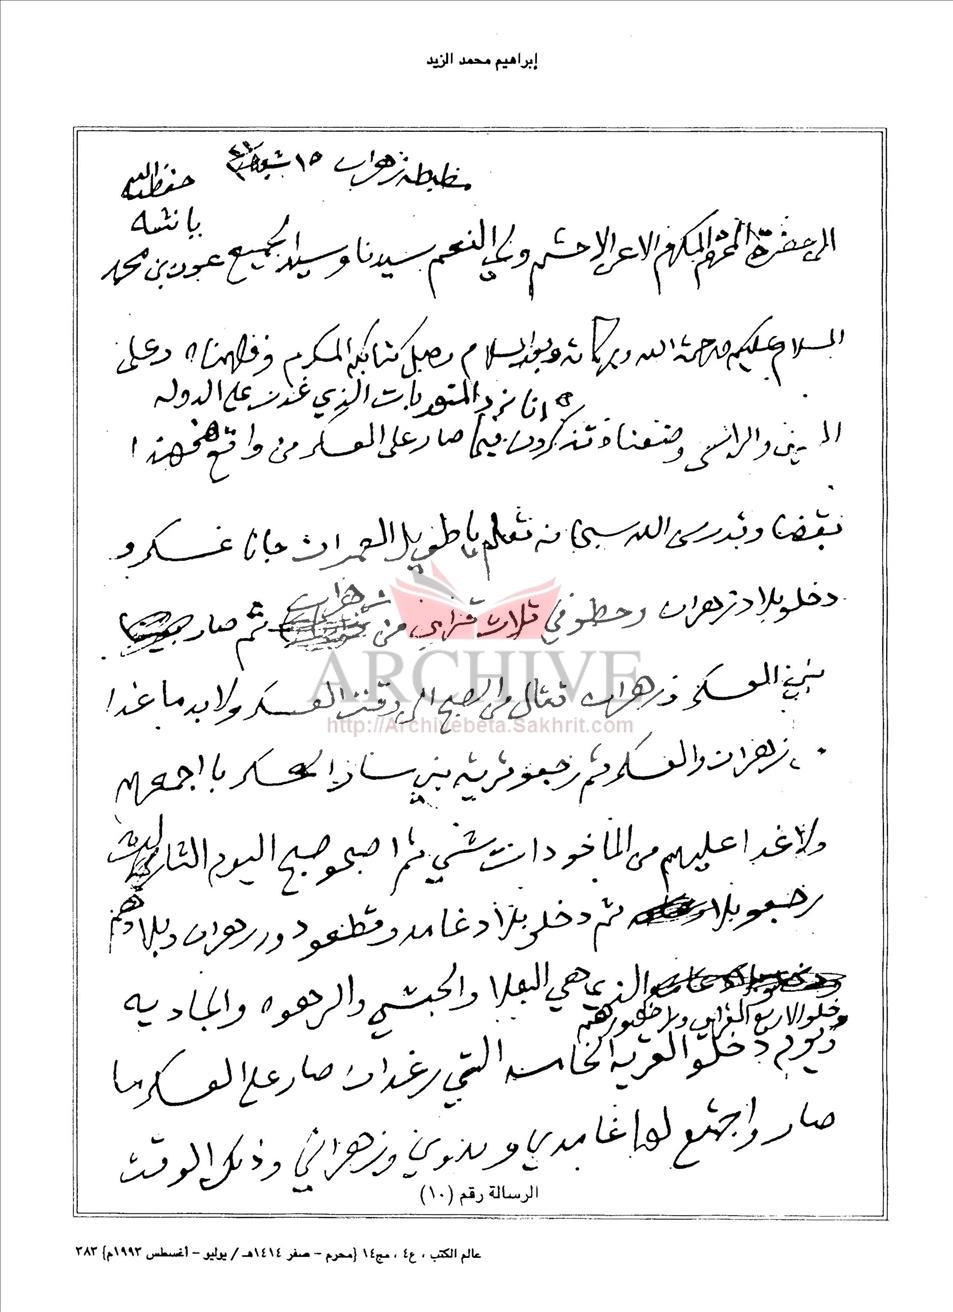 إبراهيم محمد الزيد
مظبطة زهران ١٥ شعبان
حفظه الله
باشه
الى حضرة المكرم الاعز الاحشم ولي النعم سيدنا وسيد الجميع عون بن محمد
السلام عليكم ورحمة الله وبركاته وبعد السلام وصل كتابكم المكرم وفهمناه وعلى
انا نرد المنهوبات الذي غدت على الدوله
العين والراس وضعناه تذكرون فيما صار على العسكر من واقع
بقضا وقدر من الله سبحانه تعلم يا طويل العمر ان جانا عسكر و
دخلو بلاد زهران وحطو في ثلاث قراى من زهران ثم صار
بين العسكر وزهران قتال من الصبح الى وقت العسكر ولا بد ما غدا
زهران والعسكر ثم رجعو قرية بني سار العسكر با اجمعهم
ولا غدا عليهم من الماخودات شي ثم اصبحو صبح اليوم الثالث
رجعو بلاد ثم دخلو بلاد غامد وقطعو دور زهران وبلادهم
الذي هي البعلا والحبشي والرهوه والجاديه
دخلو الاربع القراى ولا
ويوم دخلو القريه الخامسه التي رغدان صار على العسكر ما
صار واجتمع لها غامدي وبدوي وزهراني وذلك الوقت
الرسالة رقم (١٠)
ARCHIVE
http://Archivebeta.Sakhrit.com
عالم الكتب ، ع٤ ، مج١٤ {محرم - صفر ١٤١٤هـ / يوليو - أغسطس ١٩٩٣م} ٣٨٣